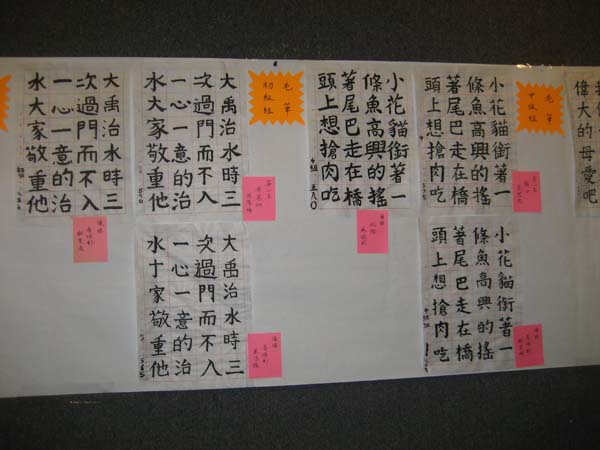 偉大的母愛吧
毛筆
中級組
小花貓銜著一
條魚高興的搖
著尾巴走在橋
頭上想搶肉吃
小花貓銜著一
條魚高興的搖
著尾巴走在橋
頭上想搶肉吃
優勝
小花貓銜著一
條魚高興的搖
著尾巴走在橋
頭上想搶肉吃
中組 五八〇
優勝
毛筆
初級組
大禹治水時三
次過門而不入
一心一意的治
水大家敬重他
第一名
大禹治水時三
次過門而不入
一心一意的治
水十家敬重他
優勝
大禹治水時三
次過門而不入
一心一意的治
水大家敬重他
優勝